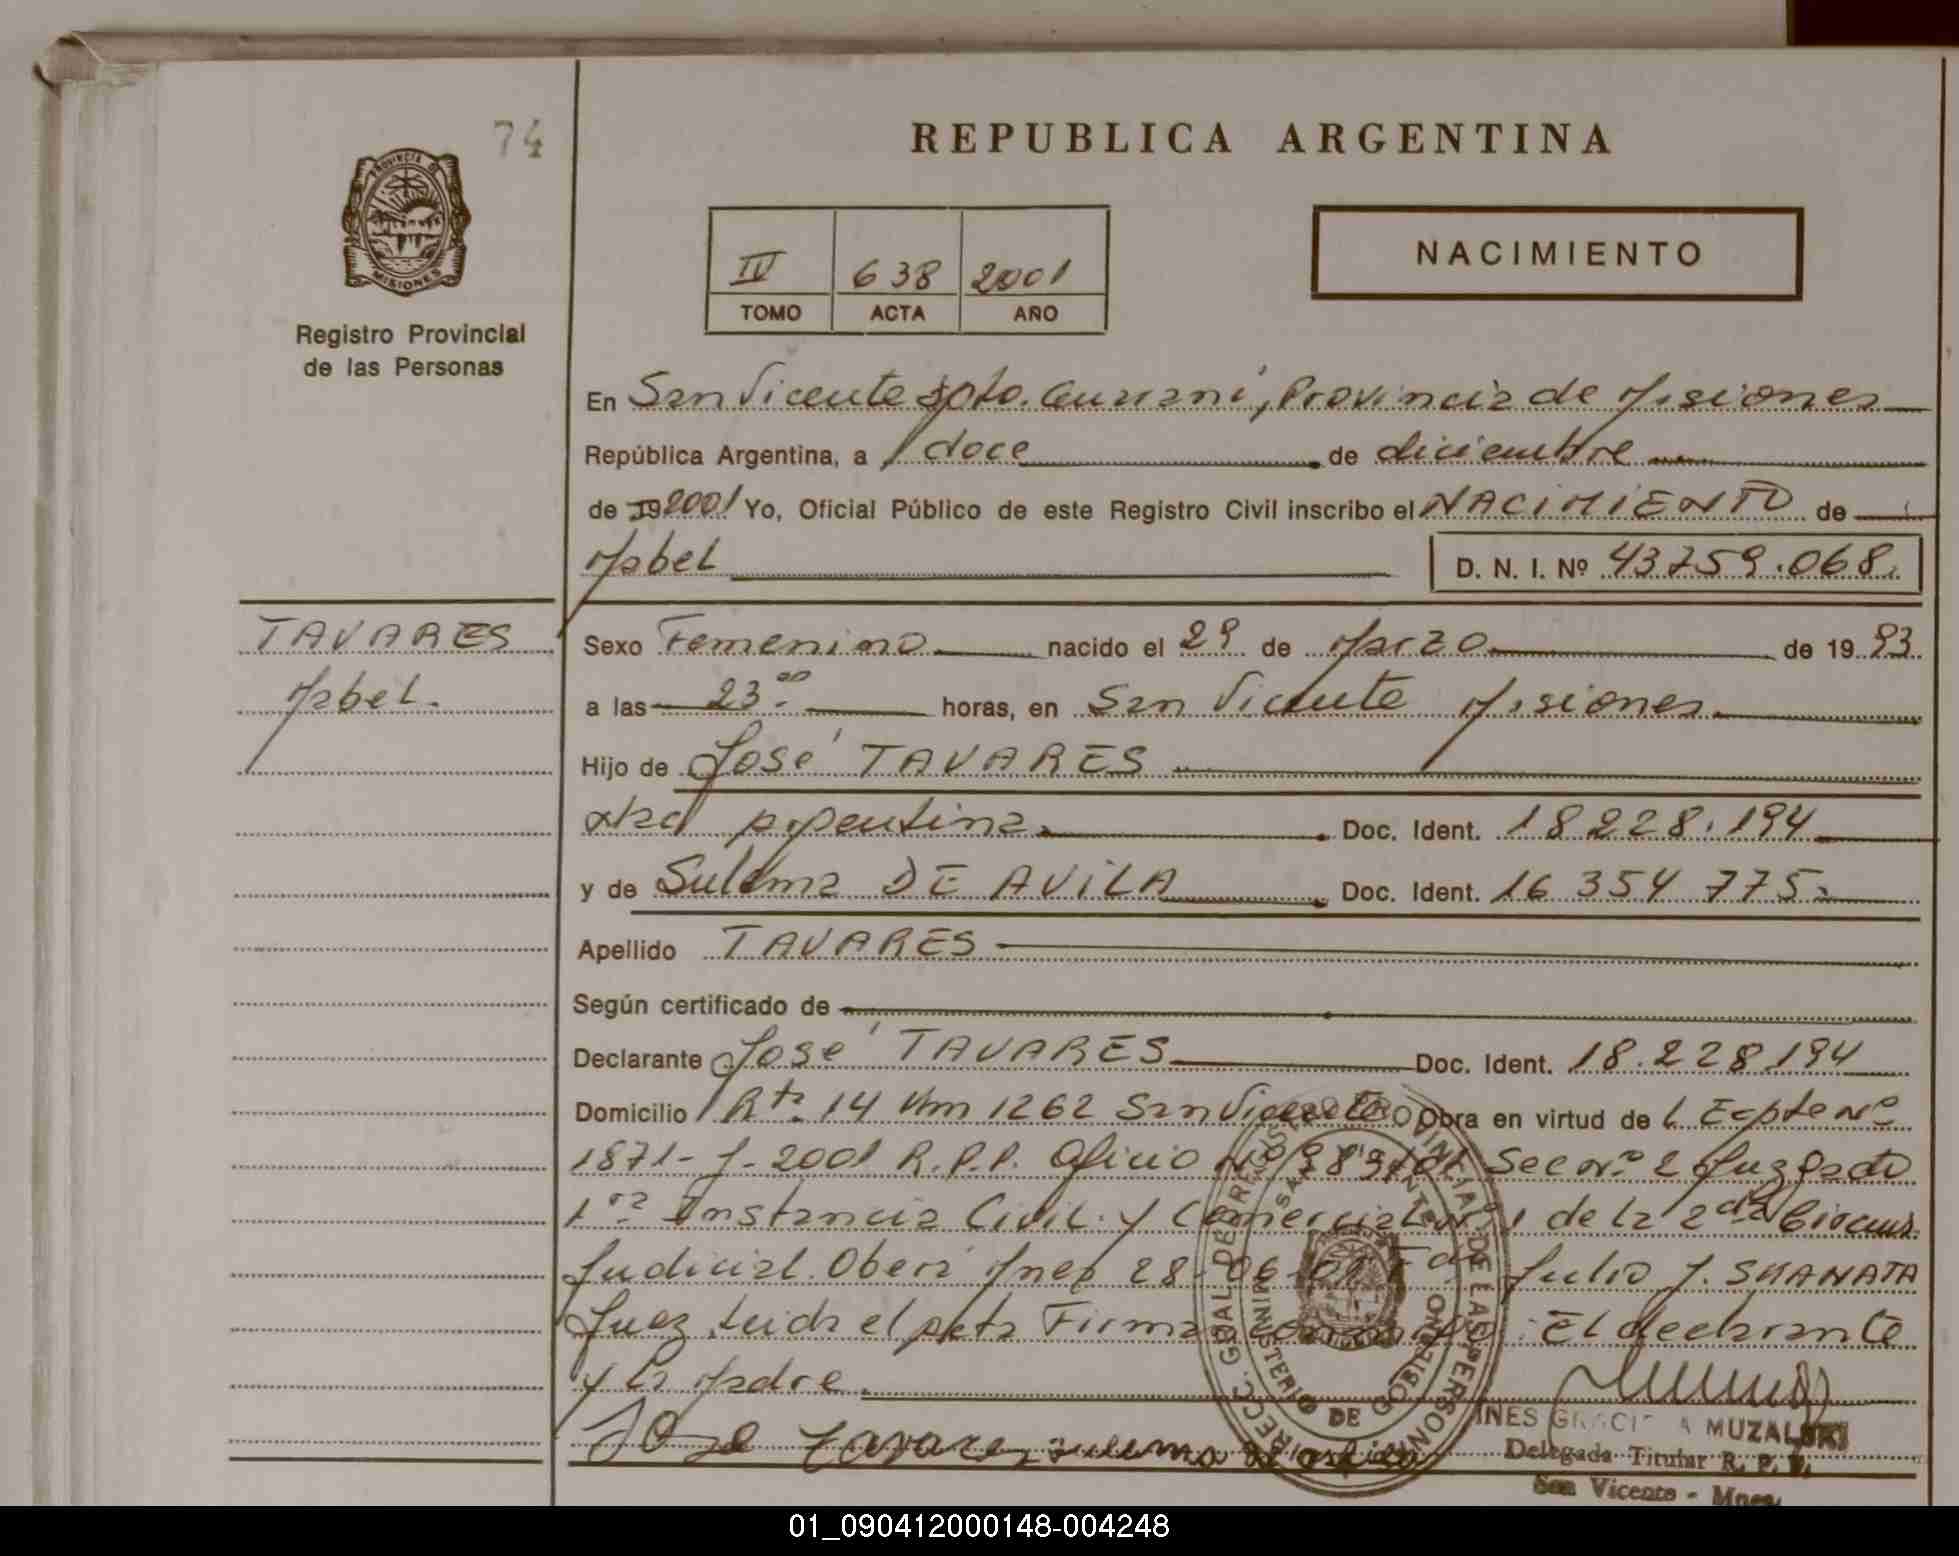 74
REPUBLICA ARGENTINA
PROVINCIA DE MISIONES
Registro Provincial
de las Personas
IV 638 2001
TOMO ACTA AÑO
NACIMIENTO
En San Vicente Dpto. Guarani, Provincia de Misiones
República Argentina, a doce de diciembre
de 19 2001 Yo, Oficial Público de este Registro Civil inscribo el NACIMIENTO de
Mabel D. N. I. Nº 43759.068.
TAVARES
Mabel.
Sexo Femenino nacido el 29 de Marzo de 19 93
a las 23.00 horas, en San Vicente Misiones
Hijo de José TAVARES
argentina Doc. Ident. 18228.194
y de Sulema DE AVILA Doc. Ident. 16 354 775
Apellido TAVARES
Según certificado de
Declarante José TAVARES Doc. Ident. 18.228194
Domicilio Rta 14 Km 1262 San Vicente Obra en virtud de L Expte Nº
1871-J-2001 R.P.P. Oficio Sec Nº 2 Juzgado
1ra Instancia Civil y Comercial Nº 1 de la 2da Circuns.
Judicial Obera Mnes 28-06-01 Fdo Julio J. SKANATA
Juez. Leida el acta Firma conmigo: El declarante
y la Madre.
Jose Tavarez sulema de avila
DIRECC. GRAL DE REGISTRO PROVINCIAL DE LAS PERSONAS
SAN VICENTE
MINISTERIO DE GOBIERNO
INES GRACIELA
Delegada Titular R. P. P.
San Vicente - Mnes.
01_090412000148-004248